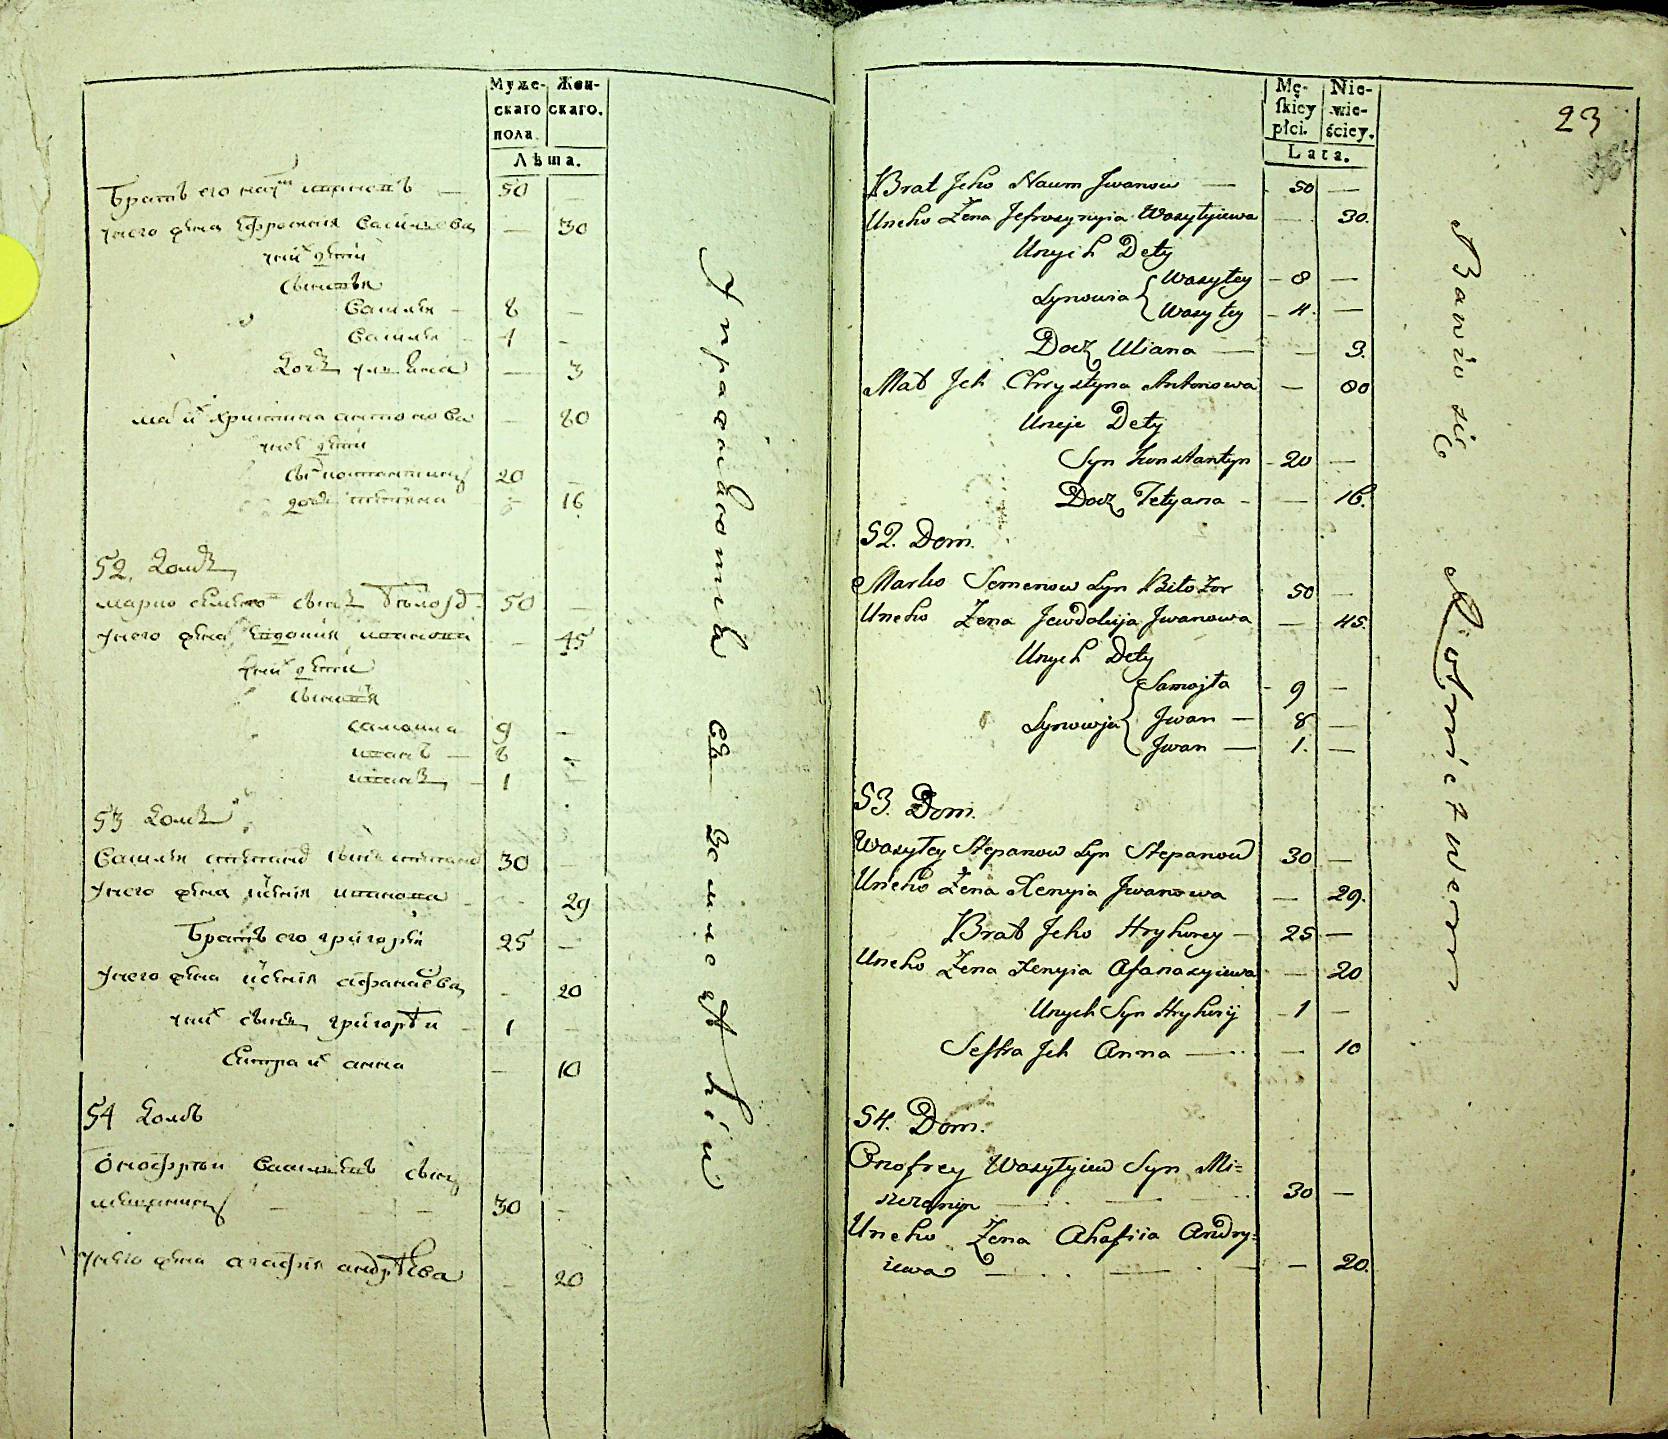 Муже-
скаго
пола.
Жен-
скаго.
Лѣта.
Братъ его Наум Ивановъ — 50 —
У него жена Ефросинія Василиева — 30
У них дети
Сыновья
Василий — 8 —
Василий 4 —
Дочь Улиана — 3
Мат их Христина Антонова — 80
У ней дети
Сын Константин 20 —
Дочь Татьяна — 16
52. Домъ
Марко Семенов сынъ Белозор 50 —
У него жена Евдокия Иванова — 45
У них дети
Сыновья
Самойла 9 —
Иванъ — 8 —
Иванъ — 1 —
53 Домъ
Василий Степанов сынъ Степанов 30 —
У него жена Ксения Иванова — 29
Братъ его Григорий 25 —
У него жена Ксения Афанасьева — 20
У них сынъ Григорѣй — 1 —
Сестра их Анна — 10
54 Домъ
Онофрѣй Василиевъ сынъ
Мищенин — — — 30 —
У него жена Агафия Андрѣева — 20
Упражняются въ земледѣлии
Mę-
skiey
płci.
Nie-
wie-
ściey.
Lata.
23
Brat Jeho Naum Jwanow — 50 —
Uneho Żena Jefrosynyia Wasyłyiewa — 30.
Unych Dety
Synowia { Wasyłey — 8 —
Wasyłey — 4. —
Docz Uliana — — 3.
Mat Jch Chrystyna Antonowa — 80
Uneje Dety
Syn Konstantyn — 20 —
Docz Tetyana — — 16.
52. Dom.
Marko Semenow Syn Biłozor 50 —
Uneho Żena Jewdokija Jwanowa — 45.
Unych Dety
Synowja { Samojła — 9 —
Jwan — 8 —
Jwan — 1. —
53. Dom.
Wasyłey Stepanow Syn Stepanow 30 —
Uneho Żena Xenyia Jwanowa — 29.
Brat Jeho Hryhorey — 25 —
Uneho Żena Xenyia Afanasyiewa — 20
Unych Syn Hryhorij — 1 —
Sestra Jch Anna — — 10
54. Dom.
Onofrey Wasyłyiew Syn Mi=
szczenin — — — 30 —
Uneho Żena Ahafiia Andry=
iewa — — — 20.
Bawią się Rolnictwem